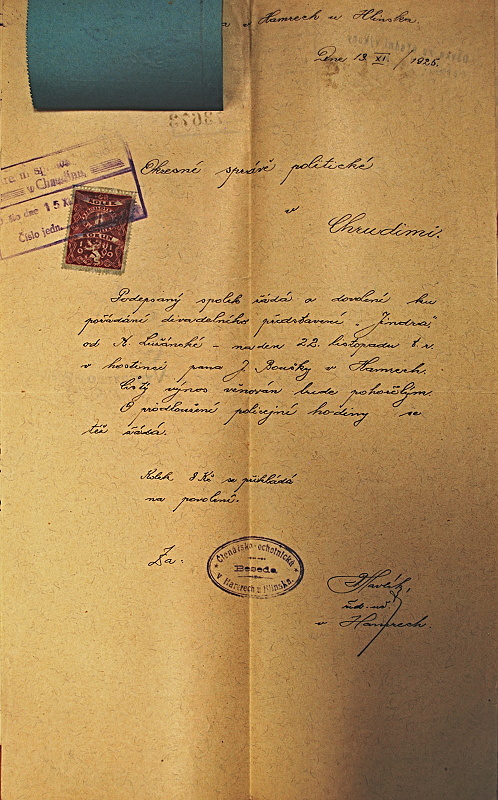 v Hamrech u Hlinska.
Dne 13. XI. / 1925.
Okresné správě politické
v
Chrudimi.
v Chrudimi,
dne 15 XI
Číslo jedn.
KOLEK
KORUN
Podepsaný spolek žádá o dovolení ku
pořádání divadelního představení „Jindra"
od A. Lužánské – na den 22. listopadu t. r.
v hostinci pana J. Boušky v Hamrech.
Čistý výnos věnován bude pohořelým.
O prodloužení policejní hodiny se
též žádá.
Kolek 8 Kč se přikládá
na povolení.
Za:
Čtenářsko-ochotnická
Beseda
v Hamrech u Hlinska.
Havlík,
v Hamrech.